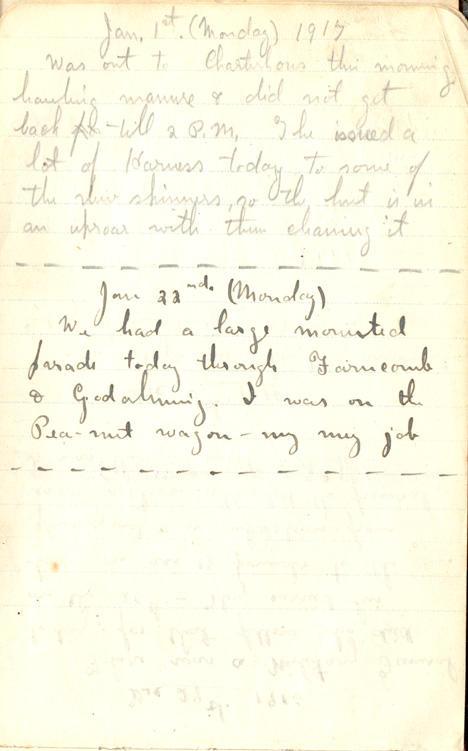 Jan. 1st. (Monday) 1917
Was out to Charterhous this morning
hauling manure & did not get
back till 2 P.M. The issued a
lot of Harness today to some of
the new skinners, so the hut is in
an uproar with them cleaning it
Jan 22nd. (Monday)
We had a large mounted
parade today through Farncomb
& Godalming. I was on the
Pea-nut wagon - my job